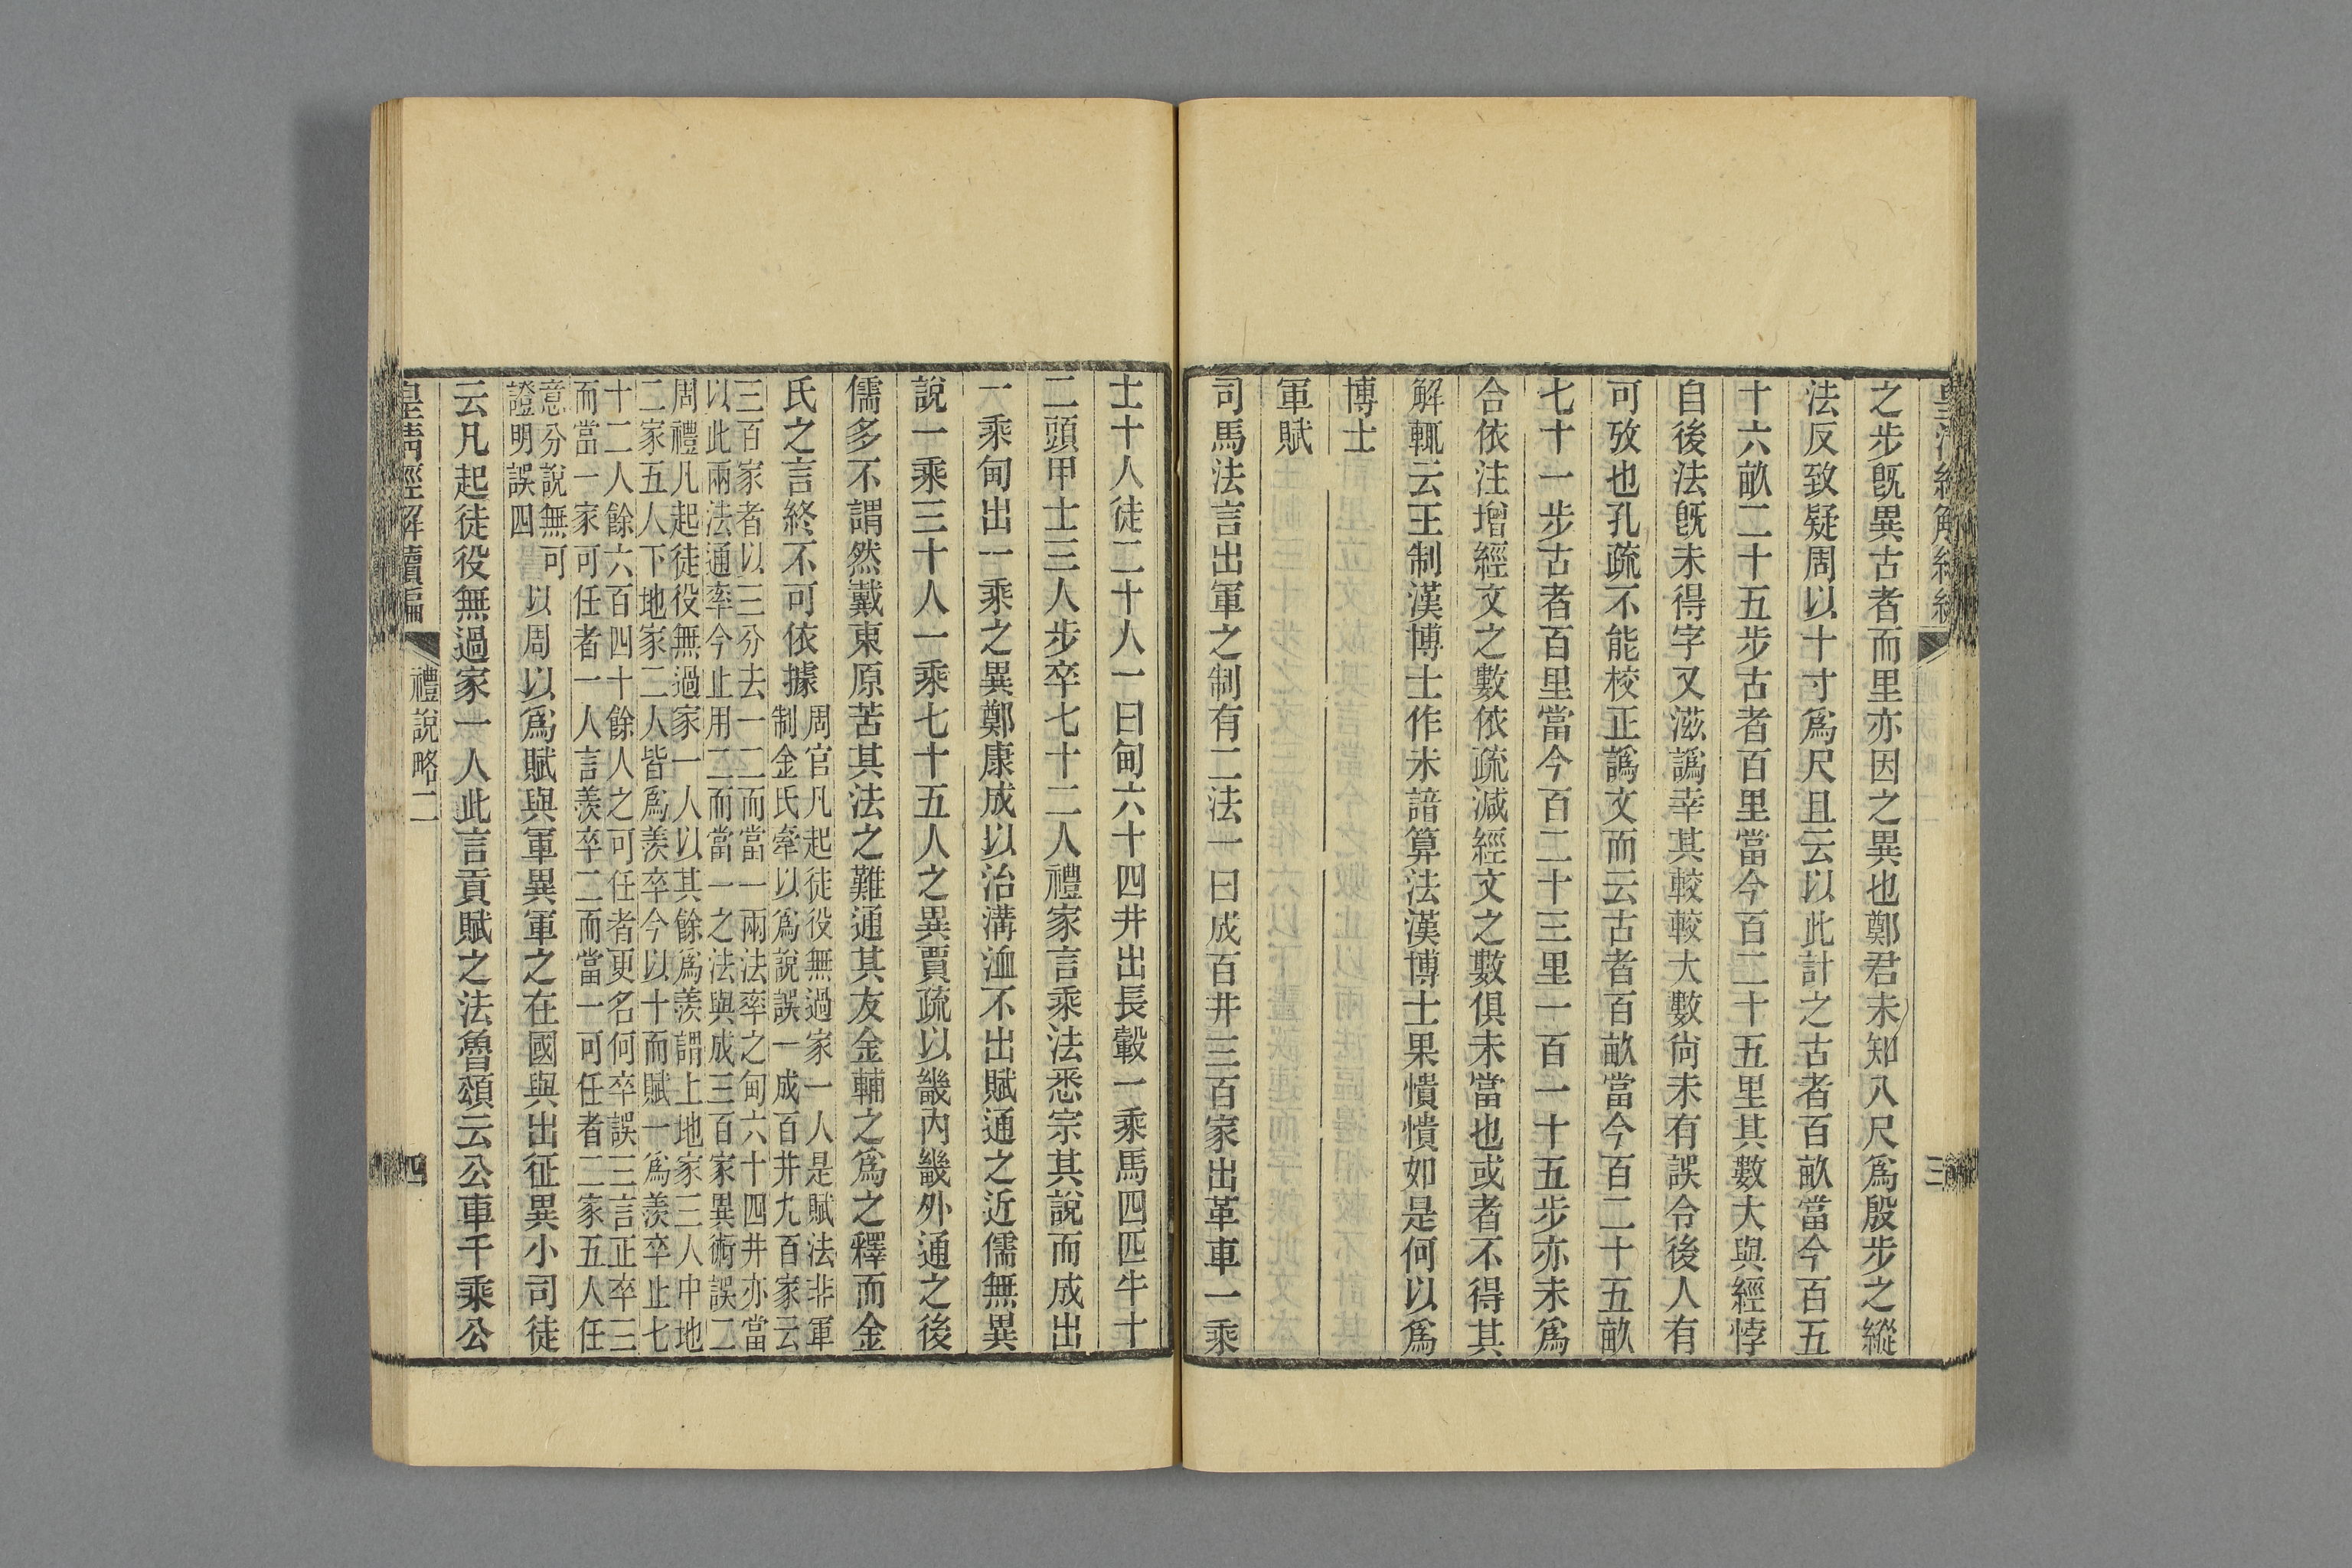 之步旣異古者而里亦因之異也鄭君未知八尺爲殷步之縱
法反致疑周以十寸爲尺且云以此計之古者百畝當今百五
十六畝二十五步古者百里當今百二十五里其數大與經悖
自後法旣未得字又滋譌幸其較較大數尙未有誤令後人有
可攷也孔疏不能校正譌文而云古者百畝當今百二十五畝
七十一步古者百里當今百二十三里一百一十五步亦未爲
合依注增經文之數依疏減經文之數俱未當也或者不得其
解輒云王制漢博士作未諳算法漢博士果憒憒如是何以爲
博士
軍賦
司馬法言出軍之制有二法一曰成百井三百家出革車一乘
三
士十人徒二十人一曰甸六十四井出長轂一乘馬四匹牛十
二頭甲士三人步卒七十二人禮家言乘法悉宗其說而成出
一乘甸出一乘之異鄭康成以治溝洫不出賦通之近儒無異
說一乘三十人一乘七十五人之異賈疏以畿內畿外通之後
儒多不謂然戴東原苦其法之難通其友金輔之爲之釋而金
氏之言終不可依據
周官凡起徒役無過家一人是賦法非軍
制金氏牽以爲說誤一成百井九百家云
三百家者以三分去一二而當一兩法率之甸六十四井亦當
以此兩法通率今止用二而當一之法與成三百家異術誤二
周禮凡起徒役無過家一人以其餘爲羨謂上地家三人中地
二家五人下地家二人皆爲羨卒今以十而賦一爲羨卒止七
十二人餘六百四十餘人之可任者更名何卒誤三言正卒三
而當一家可任者一人言羨卒二而當一可任者二家五人任
意分說無可
證明誤四
以周以爲賦與軍異軍之在國與出征異小司徒
云凡起徒役無過家一人此言貢賦之法魯頌云公車千乘公
皇淸經解續編
禮說略二
四